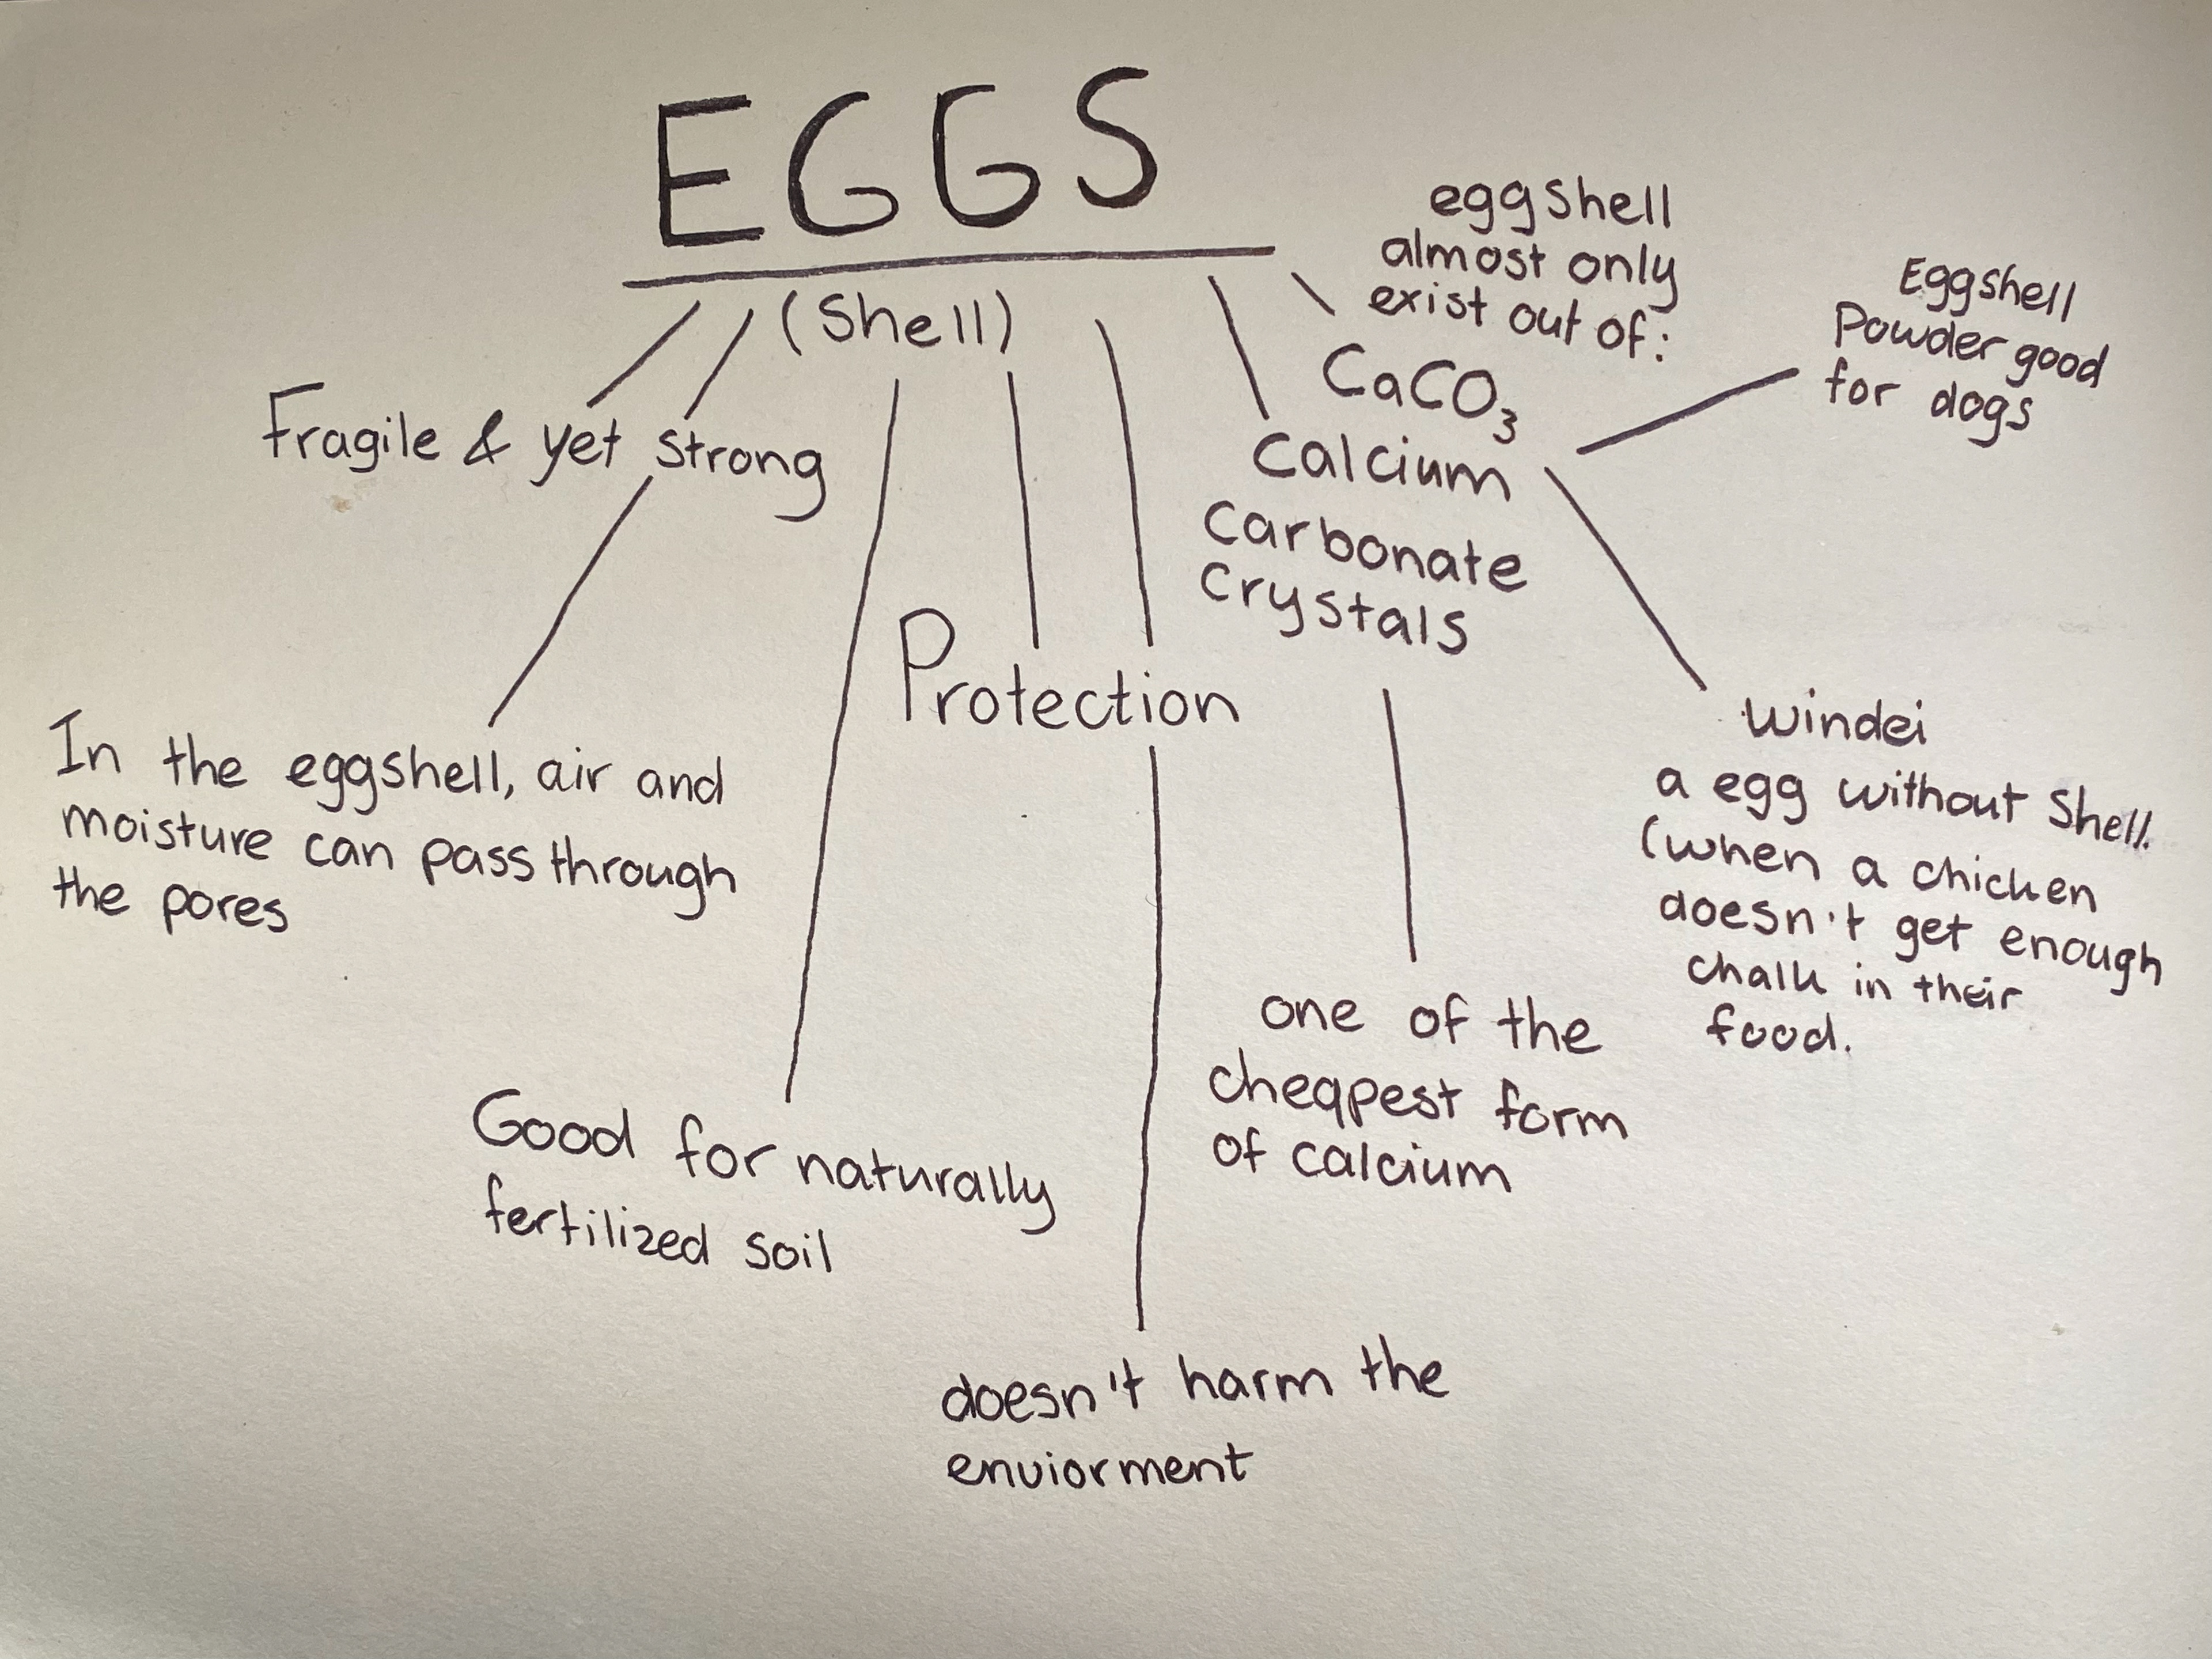 EGGS
(Shell)
Fragile & yet strong
In the eggshell, air and
moisture can pass through
the pores
Good for naturally
fertilized soil
Protection
doesn't harm the
enviorment
eggshell
almost only
exist out of:
CaCO₃
Calcium
Carbonate
Crystals
one of the
cheapest form
of calcium
Eggshell
Powder good
for dogs
Windei
a egg without Shell.
(when a chicken
doesn't get enough
chalk in their
food.